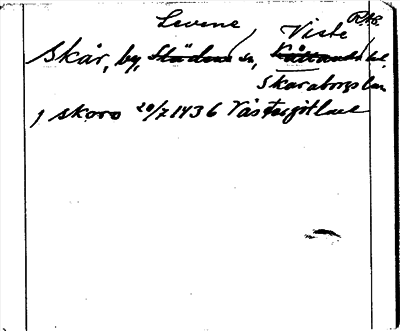 Levene Viste R.A.B.
Skår, by, Slädene sn, Kållands hd.
Skaraborgs län
j skoro 20/7 1436 Västergötland